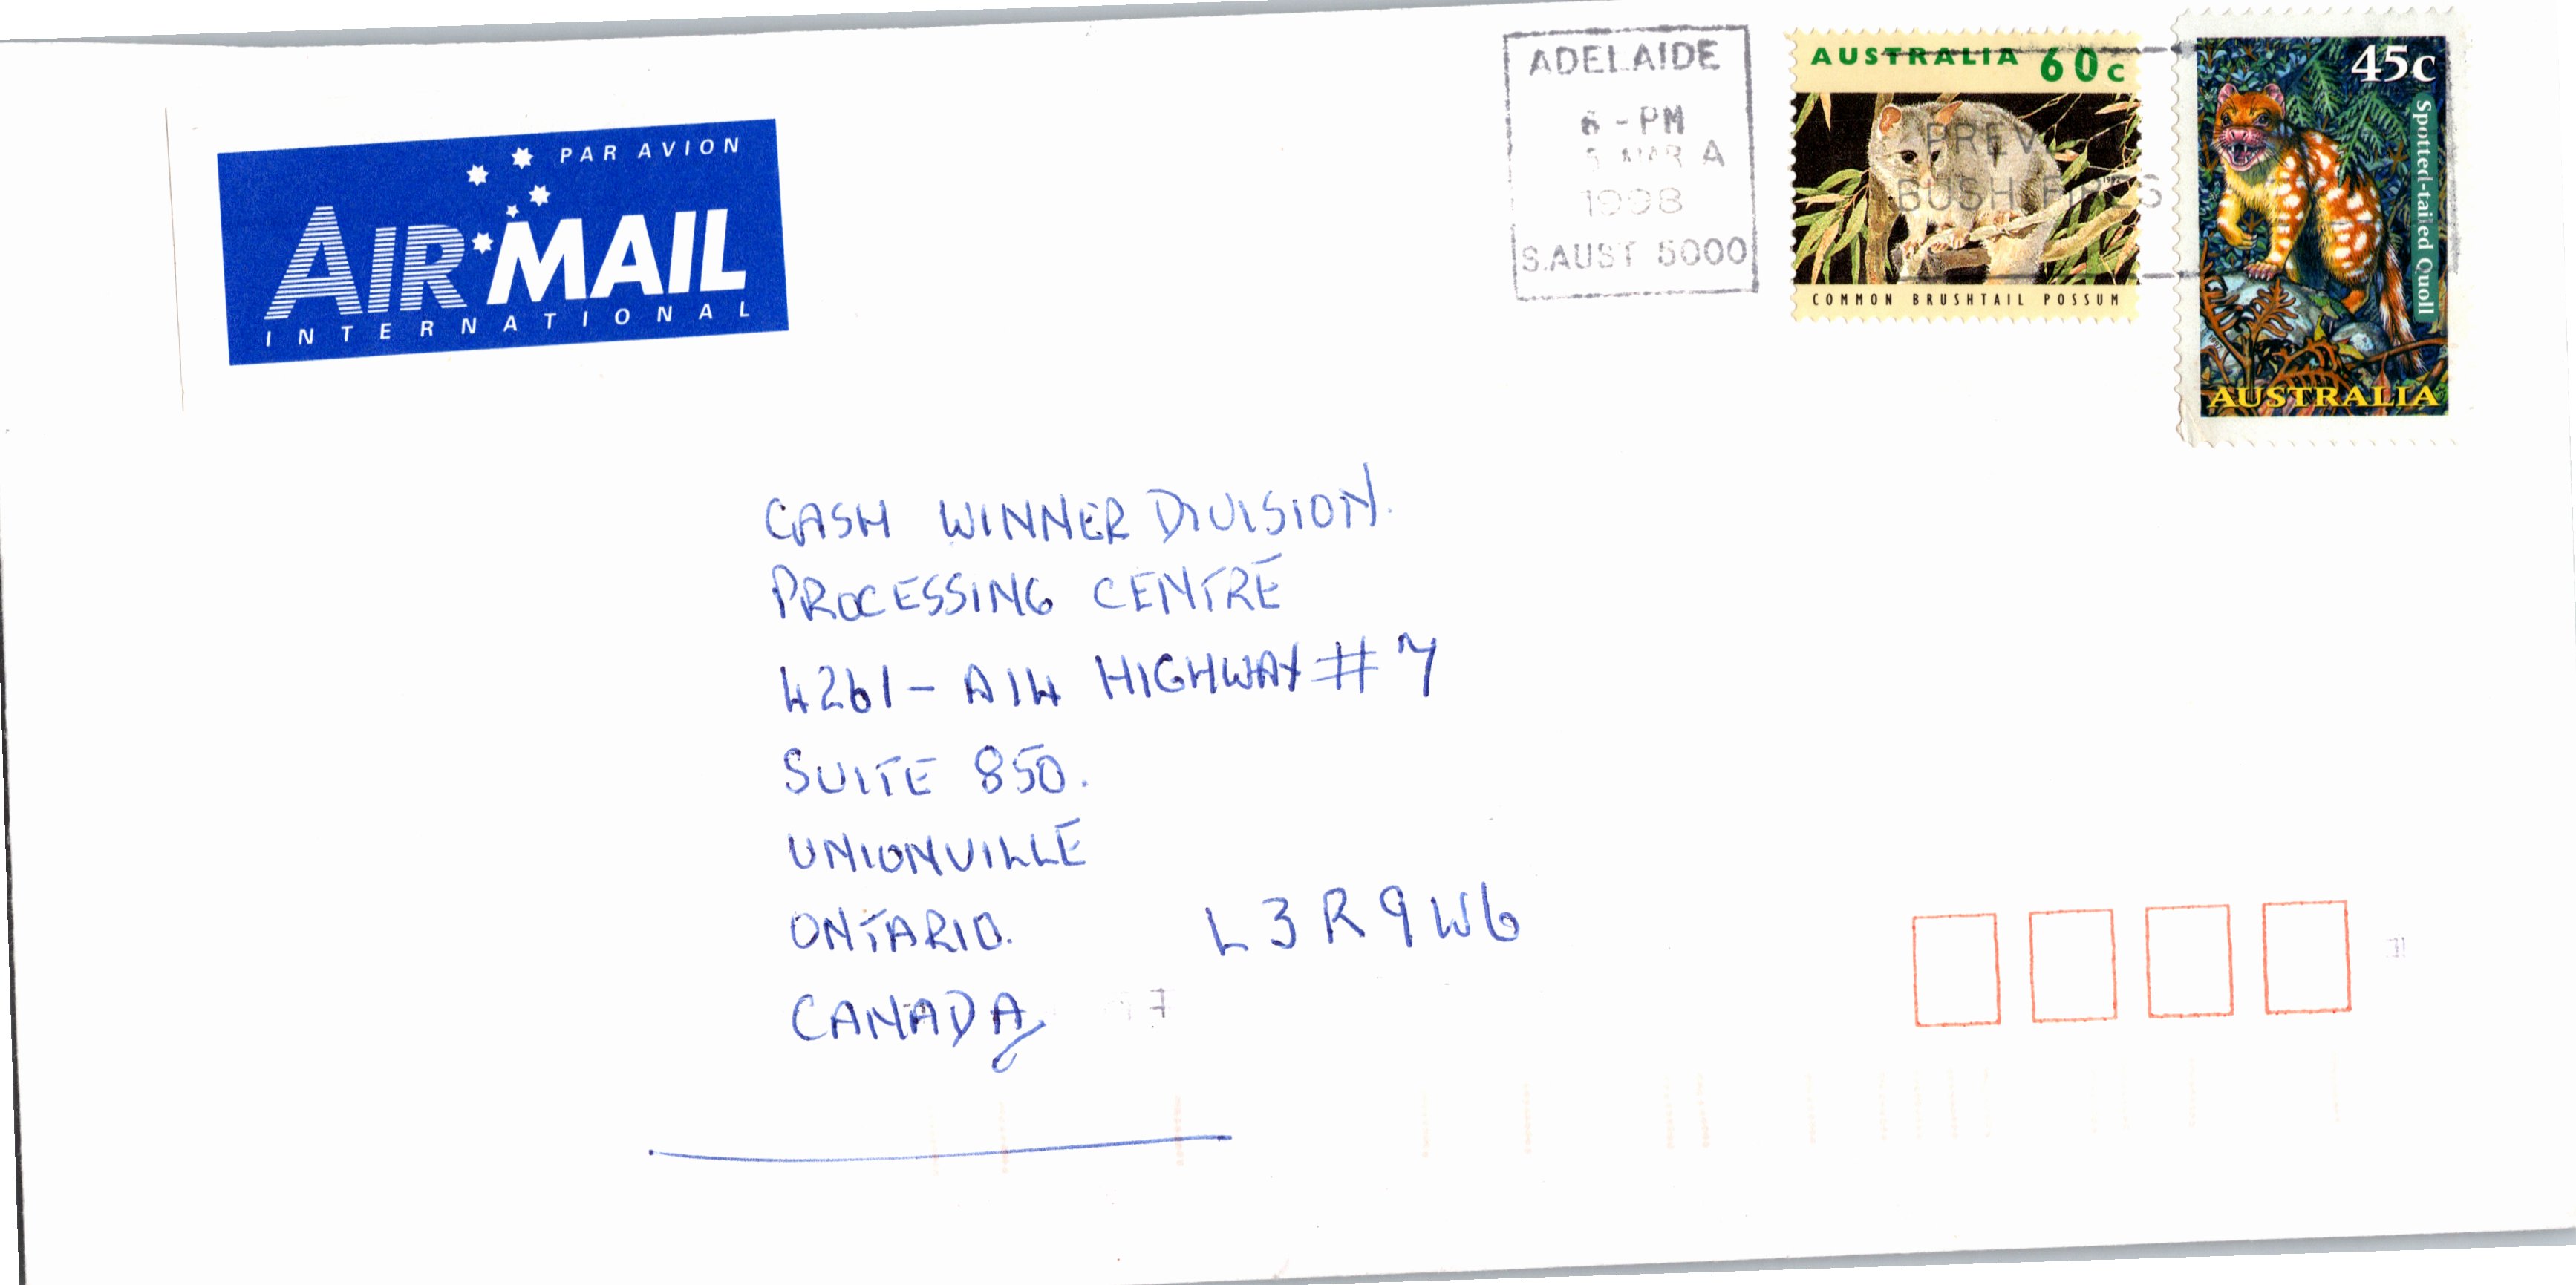 PAR AVION
AIR MAIL
INTERNATIONAL
ADELAIDE
6 - PM
MAR A
1998
S.AUST 5000
AUSTRALIA 60c
BUSH FIRES
COMMON BRUSHTAIL POSSUM
45c
Spotted-tailed Quoll
AUSTRALIA
CASH WINNER DIVISION.
PROCESSING CENTRE
4261 - A14 HIGHWAY # 7
SUITE 850.
UNIONVILLE
ONTARIO. L3R9W6
CANADA